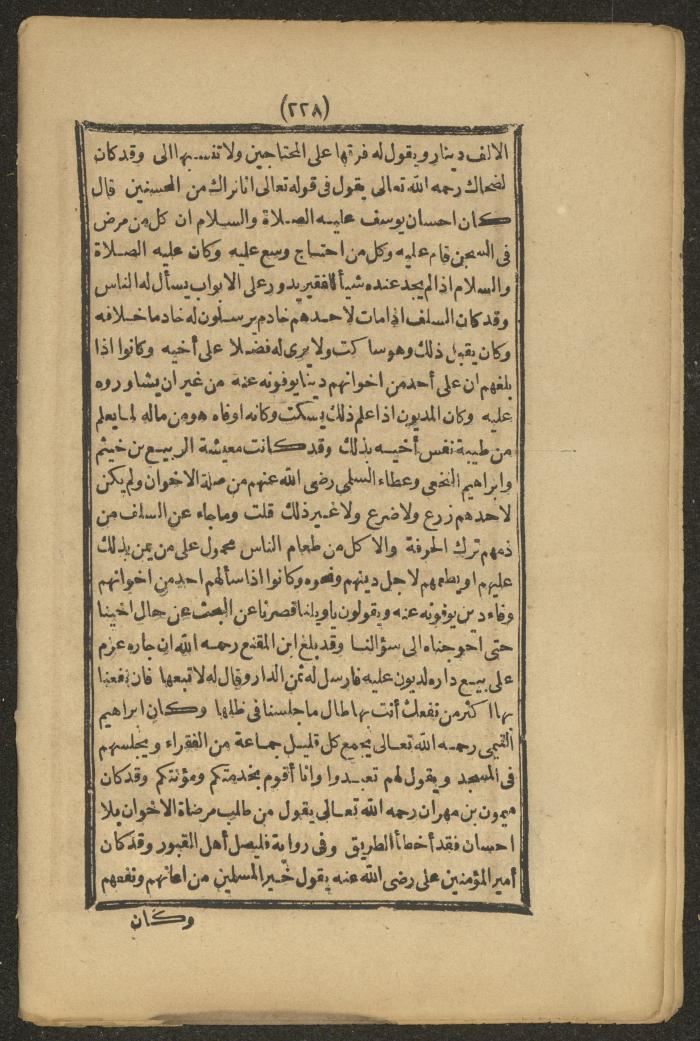 (٢٢٨)
الالف دينار ويقول له فرقها على المحتاجين ولا تنسبها الى وقد كان
لضحاك رحمه الله تعالى يقول فى قوله تعالى انا نراك من المحسنين قال
كان احسان يوسف عليه الصلاة والسلام ان كل من مرض
فى السجن قام عليه وكل من احتاج وسع عليه وكان عليه الصلاة
والسلام اذا لم يجد عنده شيأ للفقير يدور على الابواب يسأل له الناس
وقد كان السلف اذا مات لاحدهم خادم يرسلون له خادما خلافه
وكان يقبل ذلك وهو ساكت ولا يرى له فضلا على أخيه وكانوا اذا
بلغهم ان على أحد من اخوانهم دينا يوفونه عنه من غير ان يشاوروه
عليه وكان المديون اذا علم ذلك يسكت وكانه اوفاه هو من ماله لما يعلم
من طيبة نفس أخيه بذلك وقد كانت معيشة الربيع بن خيثم
وابراهيم النخعى وعطاء السلمى رضى الله عنهم من صلة الاخوان ولم يكن
لاحدهم زرع ولا ضرع ولا غير ذلك قلت وما جاء عن السلف من
ذمهم ترك الحرفة والاكل من طعام الناس محمول على من يمن بذلك
عليهم او يطعمهم لاجل دينهم ونحوه وكانوا اذا سألهم احد من اخوانهم
وفاء دين يوفونه عنه ويقولون ياويلنا قصرنا عن البحث عن حال اخينا
حتى احوجناه الى سؤالنا وقد بلغ ابن المقنع رحمه الله ان جاره عزم
على بيع داره لديون عليه فارسل له ثمن الدار وقال له لا تبعها فان نفعنا
بها اكثر من نفعك أنت بها طال ما جلسنا فى ظلها وكان ابراهيم
التيمى رحمه الله تعالى يجمع كل قليل جماعة من الفقراء ويجلسهم
فى المسجد ويقول لهم تعبدوا وانا أقوم بخدمتكم ومؤنتكم وقد كان
ميمون بن مهران رحمه الله تعالى يقول من طلب مرضاة الاخوان بلا
احسان فقد أخطأ الطريق وفى رواية فليصل أهل القبور وقد كان
أمير المؤمنين على رضى الله عنه يقول خير المسلمين من اعانهم ونفعهم
وكان